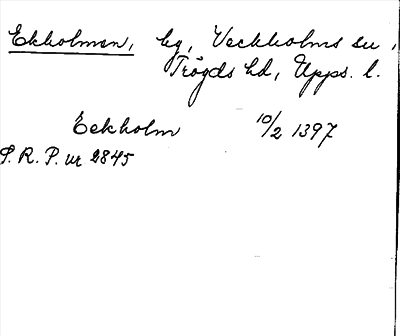 Ekholmen, by, Veckholms sn,
Trögds hd, Upps. l.
Eekholm 10/2 1397
S. R. P. nr 2845